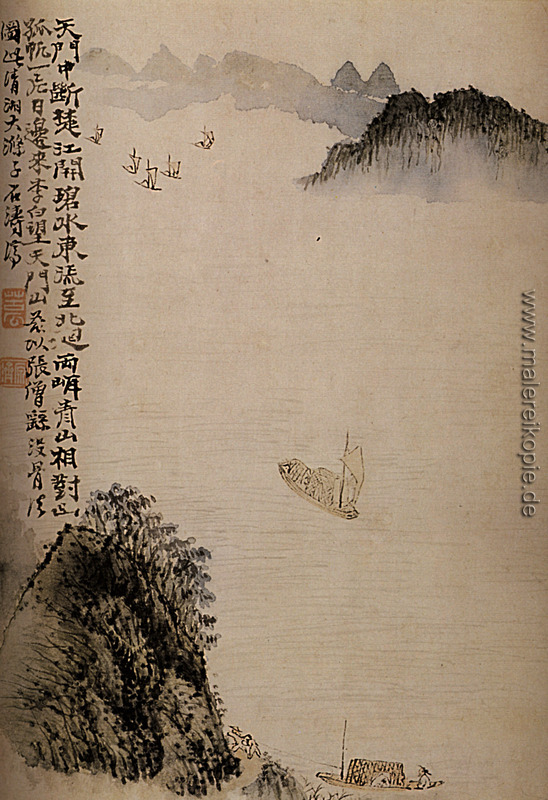 天門中斷楚江開碧水東流至北迴兩岸青山相對出
孤帆一片日邊來李白望天門山茲以張僧繇沒骨法
圖此清湘大滌子石濤
www.malereikopie.de